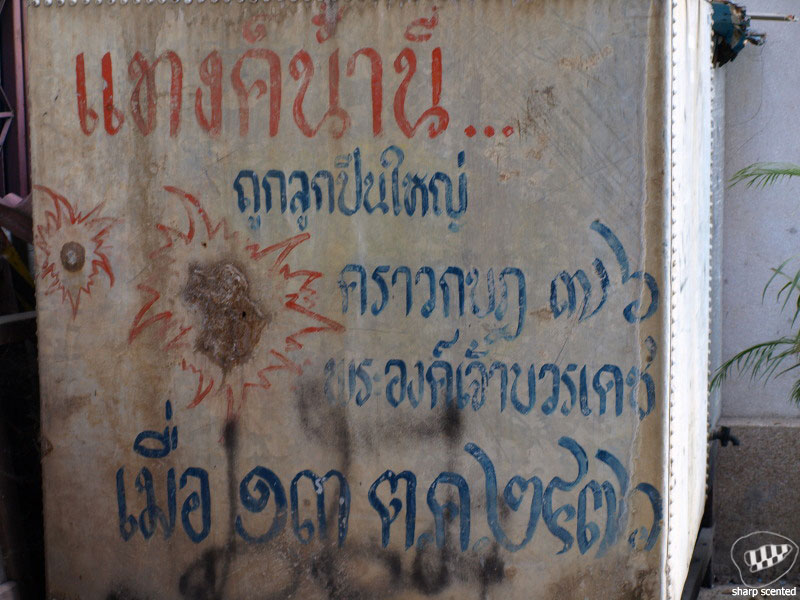 แทงค์น้ำนี้...
ถูกลูกปืนใหญ่
คราวกบฎ ๗๖
พระองค์เจ้าบวรเดช
เมื่อ ๑๓ ต.ค. ๒๔๗๖
sharp scented